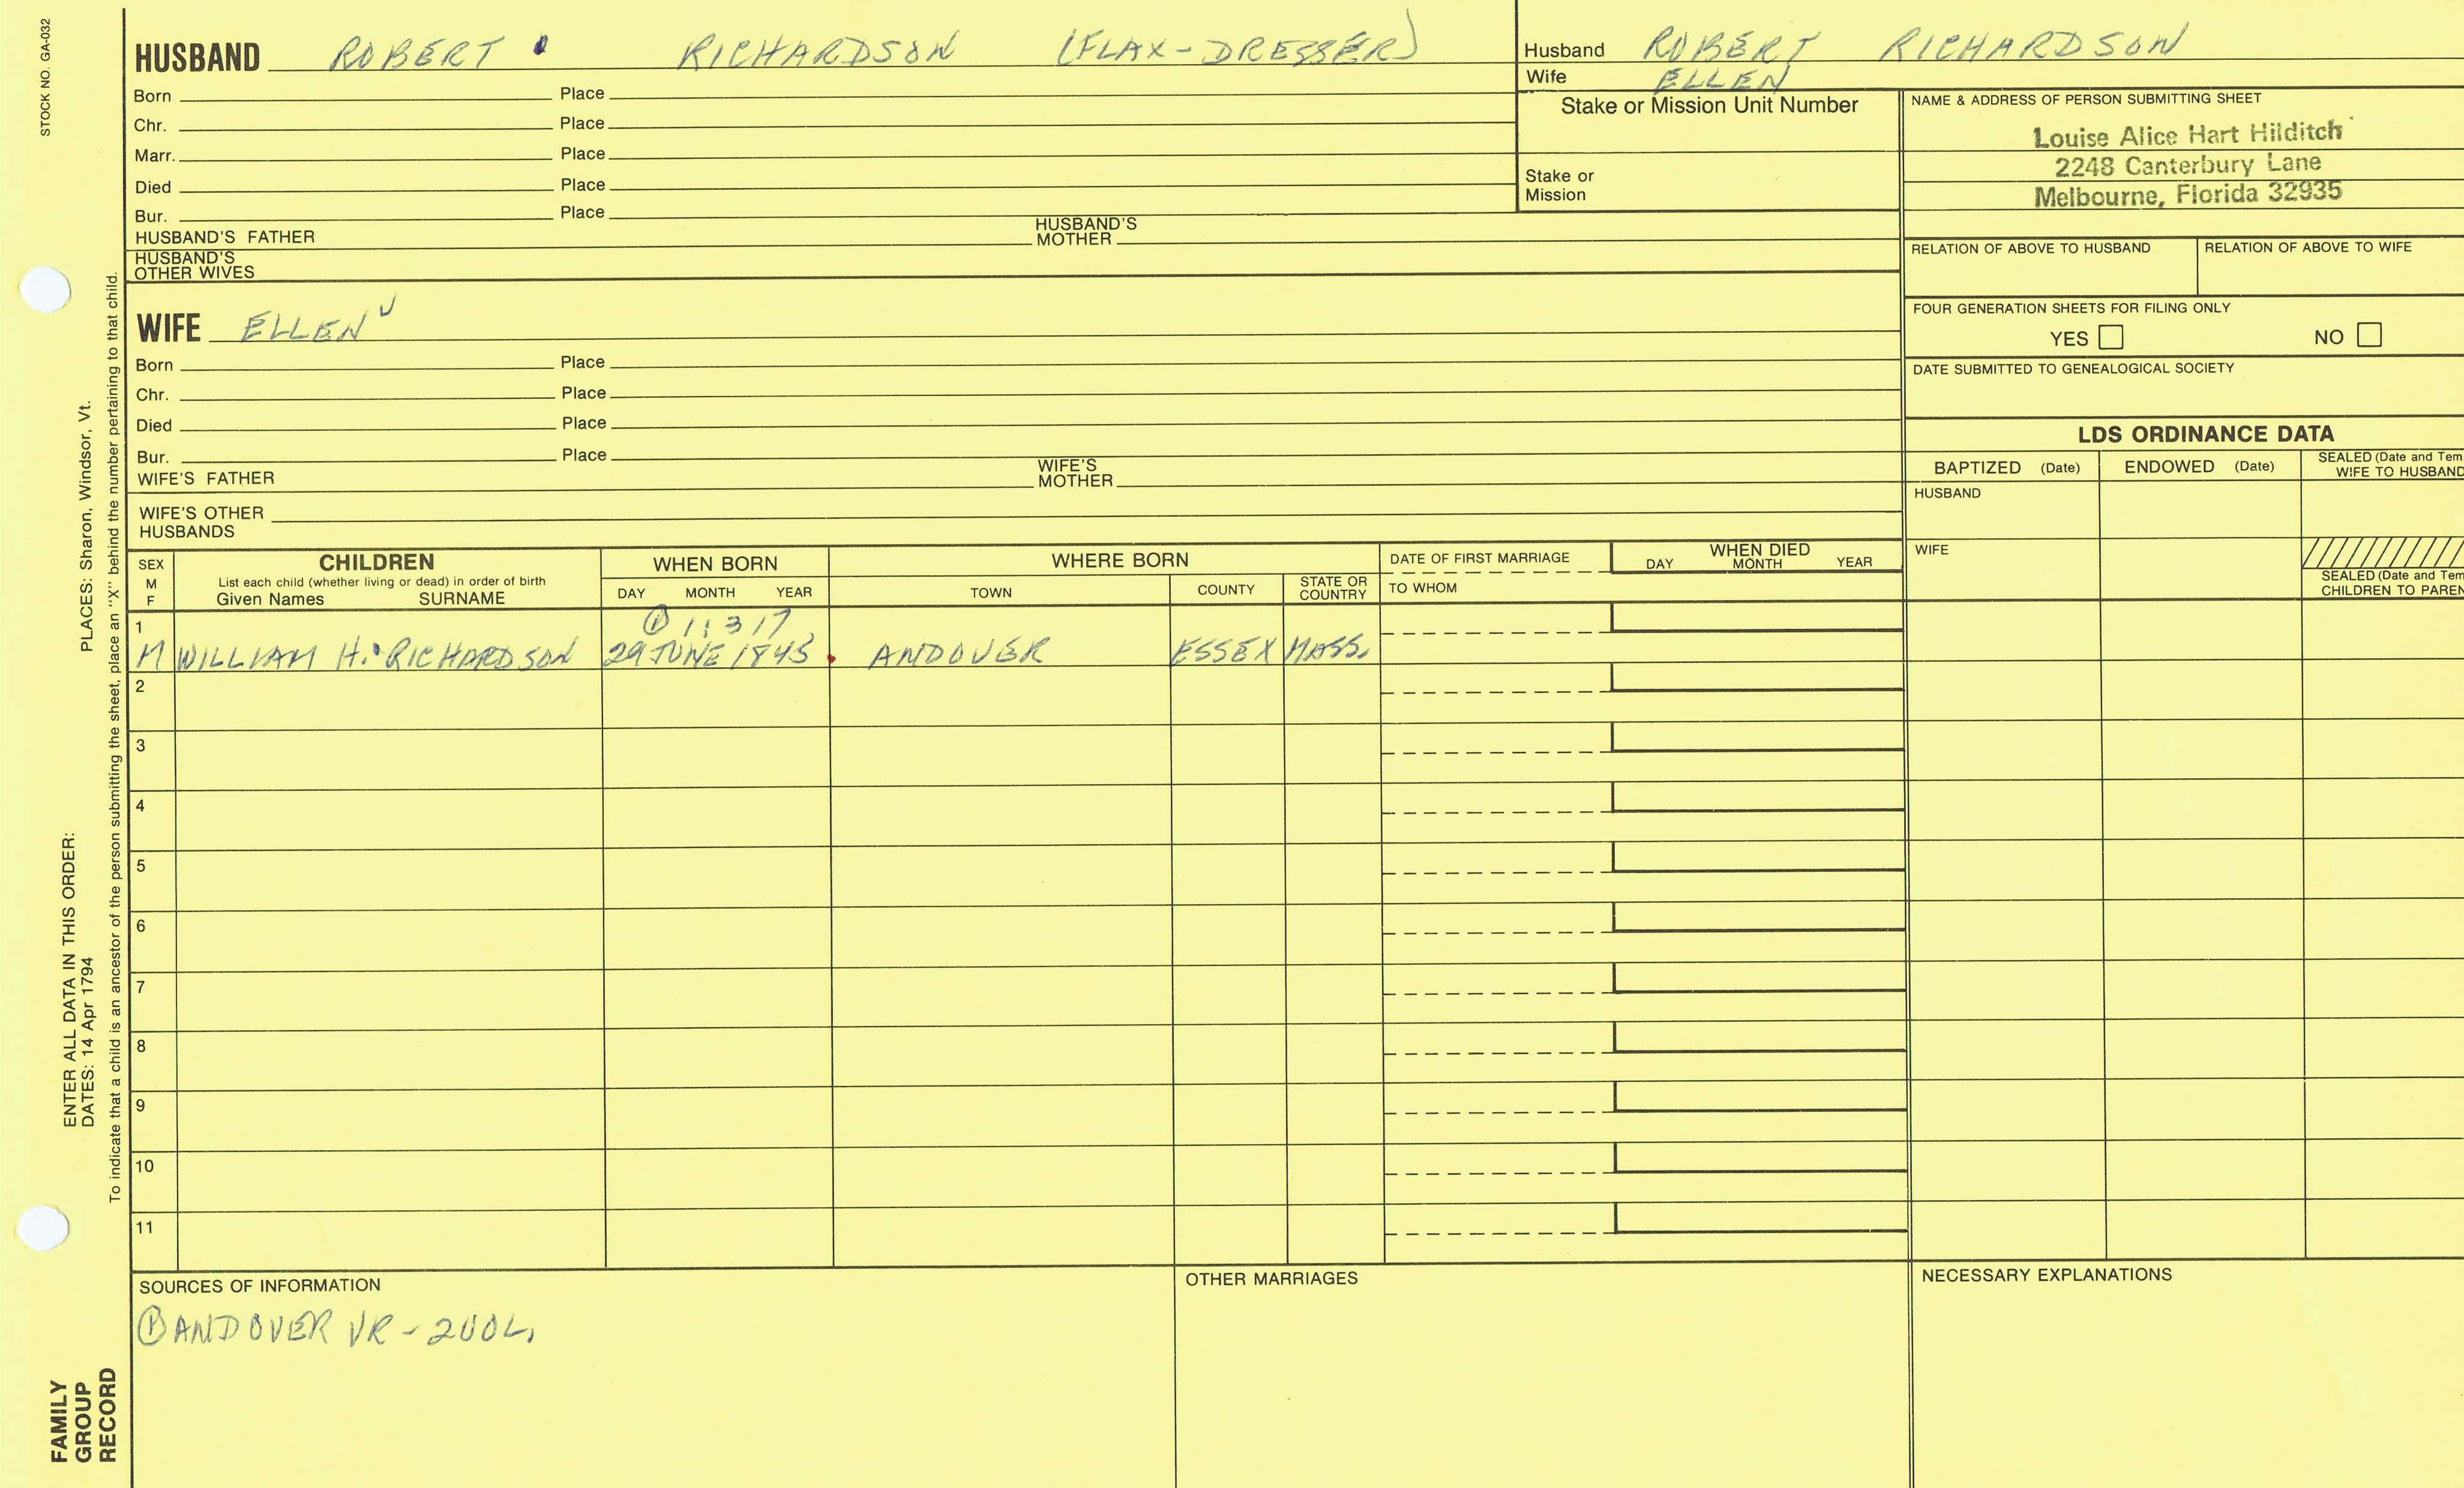 STOCK NO. GA-032
HUSBAND ROBERT RICHARDSON (FLAX-DRESSER)
Born Place
Chr. Place
Marr. Place
Died Place
Bur. Place
HUSBAND'S FATHER HUSBAND'S MOTHER
HUSBAND'S OTHER WIVES
Husband ROBERT RICHARDSON
Wife ELLEN
Stake or Mission Unit Number
Stake or
Mission
NAME & ADDRESS OF PERSON SUBMITTING SHEET
Louise Alice Hart Hilditch
2248 Canterbury Lane
Melbourne, Florida 32935
RELATION OF ABOVE TO HUSBAND RELATION OF ABOVE TO WIFE
FOUR GENERATION SHEETS FOR FILING ONLY
YES NO
DATE SUBMITTED TO GENEALOGICAL SOCIETY
WIFE ELLEN
Born Place
Chr. Place
Died Place
Bur. Place
WIFE'S FATHER WIFE'S MOTHER
WIFE'S OTHER
HUSBANDS
LDS ORDINANCE DATA
BAPTIZED (Date) ENDOWED (Date) SEALED (Date and Tem
WIFE TO HUSBAND
HUSBAND
WIFE
SEALED (Date and Tem
CHILDREN TO PAREN
SEX
M
F
CHILDREN
List each child (whether living or dead) in order of birth
Given Names SURNAME
WHEN BORN
DAY MONTH YEAR
WHERE BORN
TOWN COUNTY STATE OR COUNTRY
DATE OF FIRST MARRIAGE
TO WHOM
WHEN DIED
DAY MONTH YEAR
1 ① 1:317
M WILLIAM H. RICHARDSON 29 JUNE 1845 ANDOVER ESSEX MASS.
2
3
4
5
6
7
8
9
10
11
SOURCES OF INFORMATION
① ANDOVER VR - 200L,
OTHER MARRIAGES
NECESSARY EXPLANATIONS
ENTER ALL DATA IN THIS ORDER:
DATES: 14 Apr 1794 PLACES: Sharon, Windsor, Vt.
To indicate that a child is an ancestor of the person submitting the sheet, place an "X" behind the number pertaining to that child.
FAMILY
GROUP
RECORD